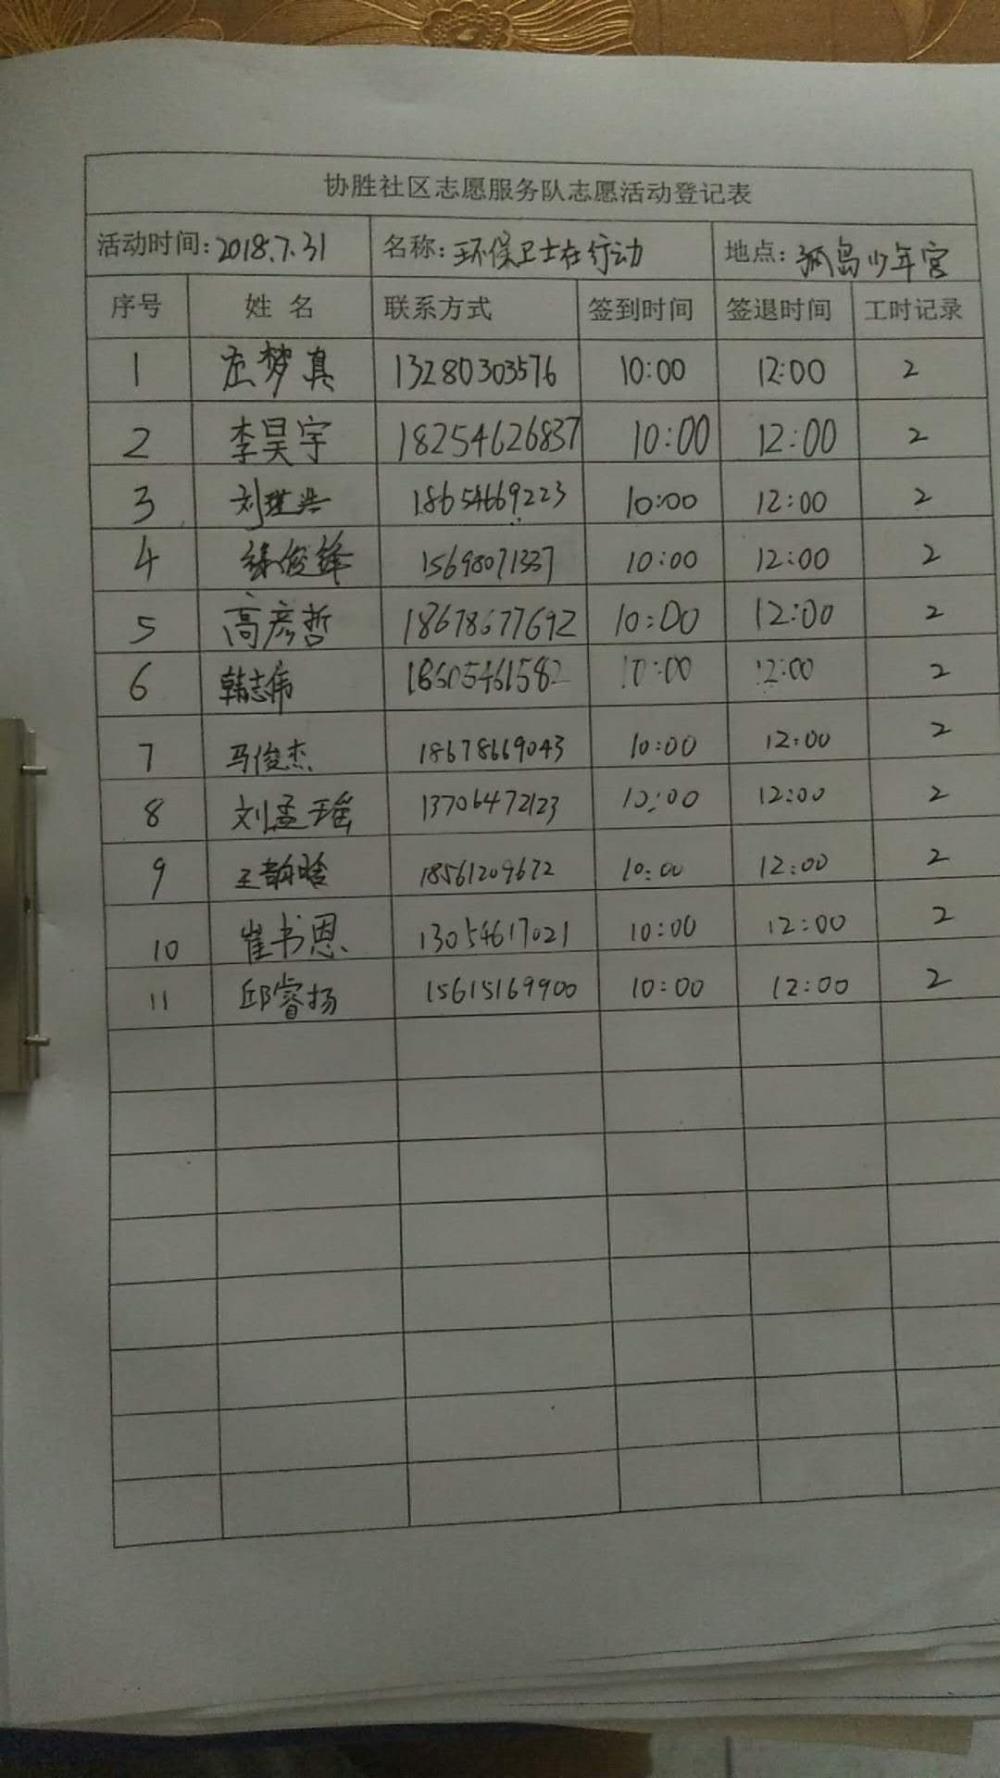 协胜社区志愿服务队志愿活动登记表
活动时间:2018.7.31 名称:环保卫士在行动 地点:孤岛少年宫
序号 姓名 联系方式 签到时间 签退时间 工时记录
1 庄梦真 13280303576 10:00 12:00 2
2 李昊宇 18254626837 10:00 12:00 2
3 刘 18654669223 10:00 12:00 2
4 徐俊锋 15698071337 10:00 12:00 2
5 高彦哲 18678677692 10:00 12:00 2
6 韩志伟 18605461582 10:00 12:00 2
7 马俊杰 18678669043 10:00 12:00 2
8 刘孟瑶 13706472123 10:00 12:00 2
9 王 晗 18561209672 10:00 12:00 2
10 崔书恩 13054617021 10:00 12:00 2
11 邱睿扬 15615169900 10:00 12:00 2